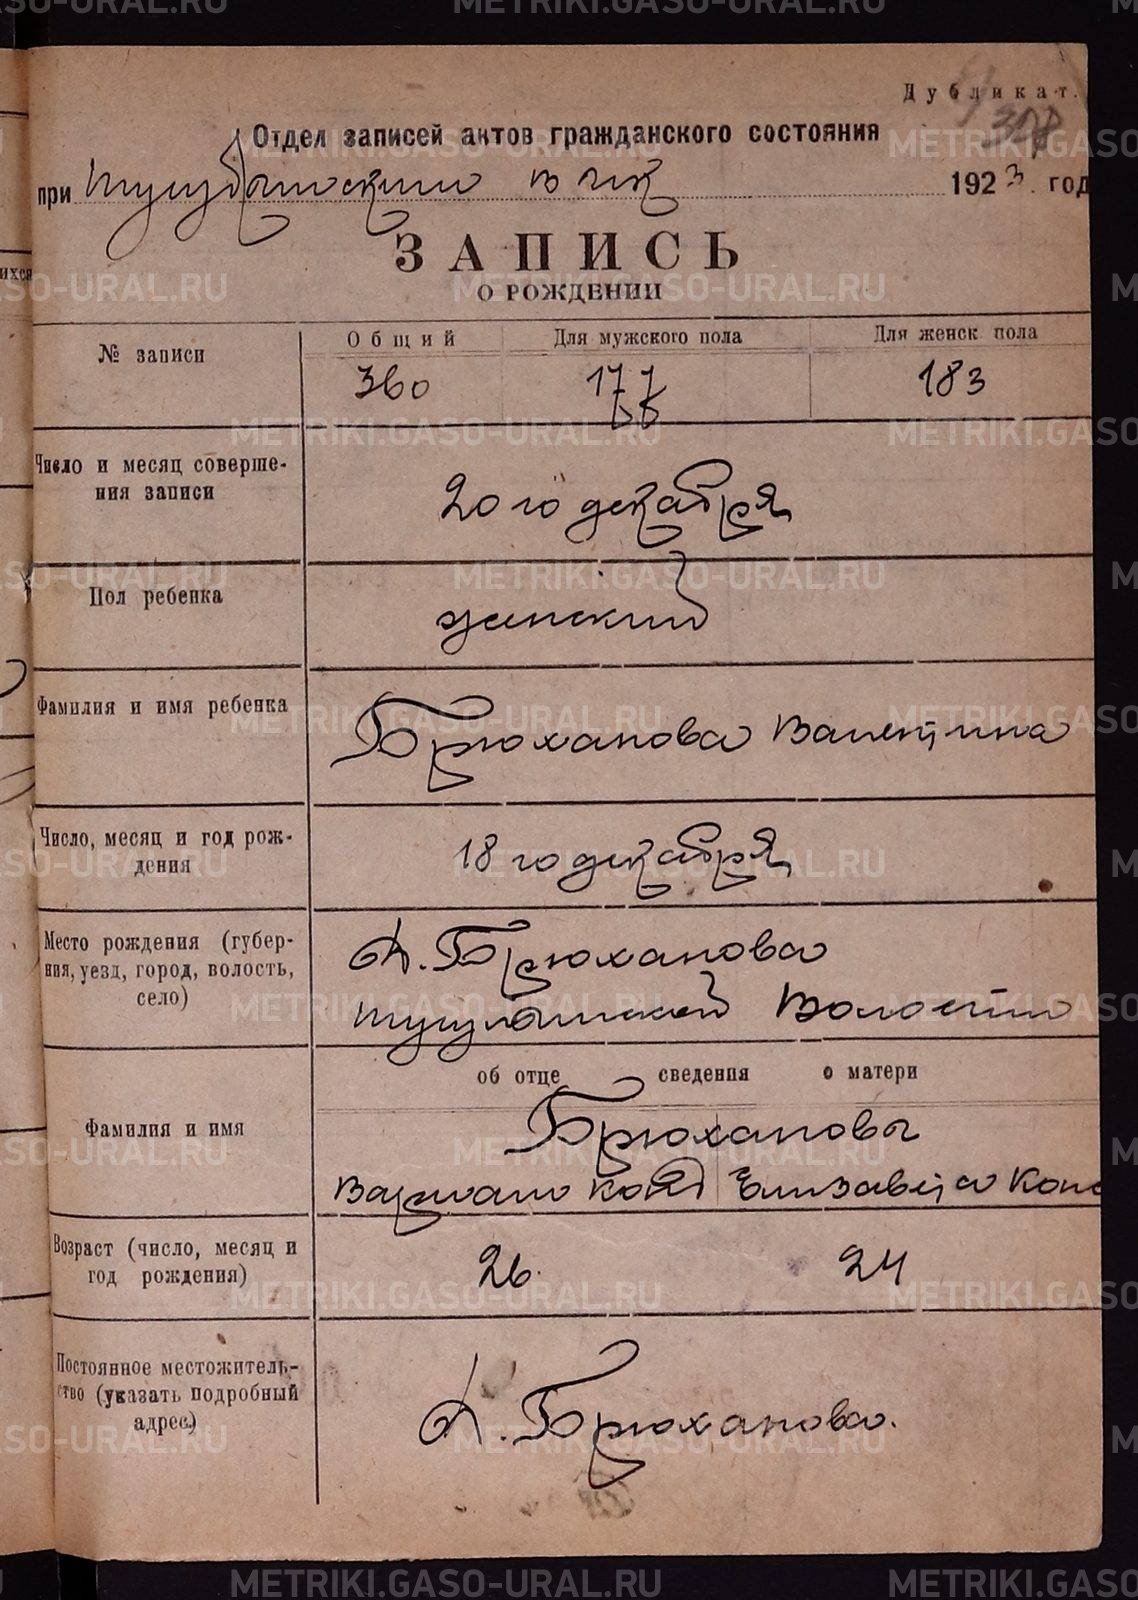 Дубликат.
308
Отдел записей актов гражданского состояния
при Тугулымском вик 1923 год
ЗАПИСЬ
О РОЖДЕНИИ
№ записи
Общий
Для мужского пола
Для женск пола
360
177
183
Число и месяц соверше-
ния записи
20 го декабря
Пол ребенка
женский
Фамилия и имя ребенка
Брюханова Валентина
Число, месяц и год рож-
дения
18 го декабря
Место рождения (губер-
ния, уезд, город, волость,
село)
д. Брюханова
Волости
об отце сведения о матери
Фамилия и имя
Брюхановы
Елизавета Конс
Возраст (число, месяц и
год рождения)
26.
24
Постоянное местожитель-
ство (указать подробный
адрес)
д. Брюханова.
METRIKI.GASO-URAL.RU